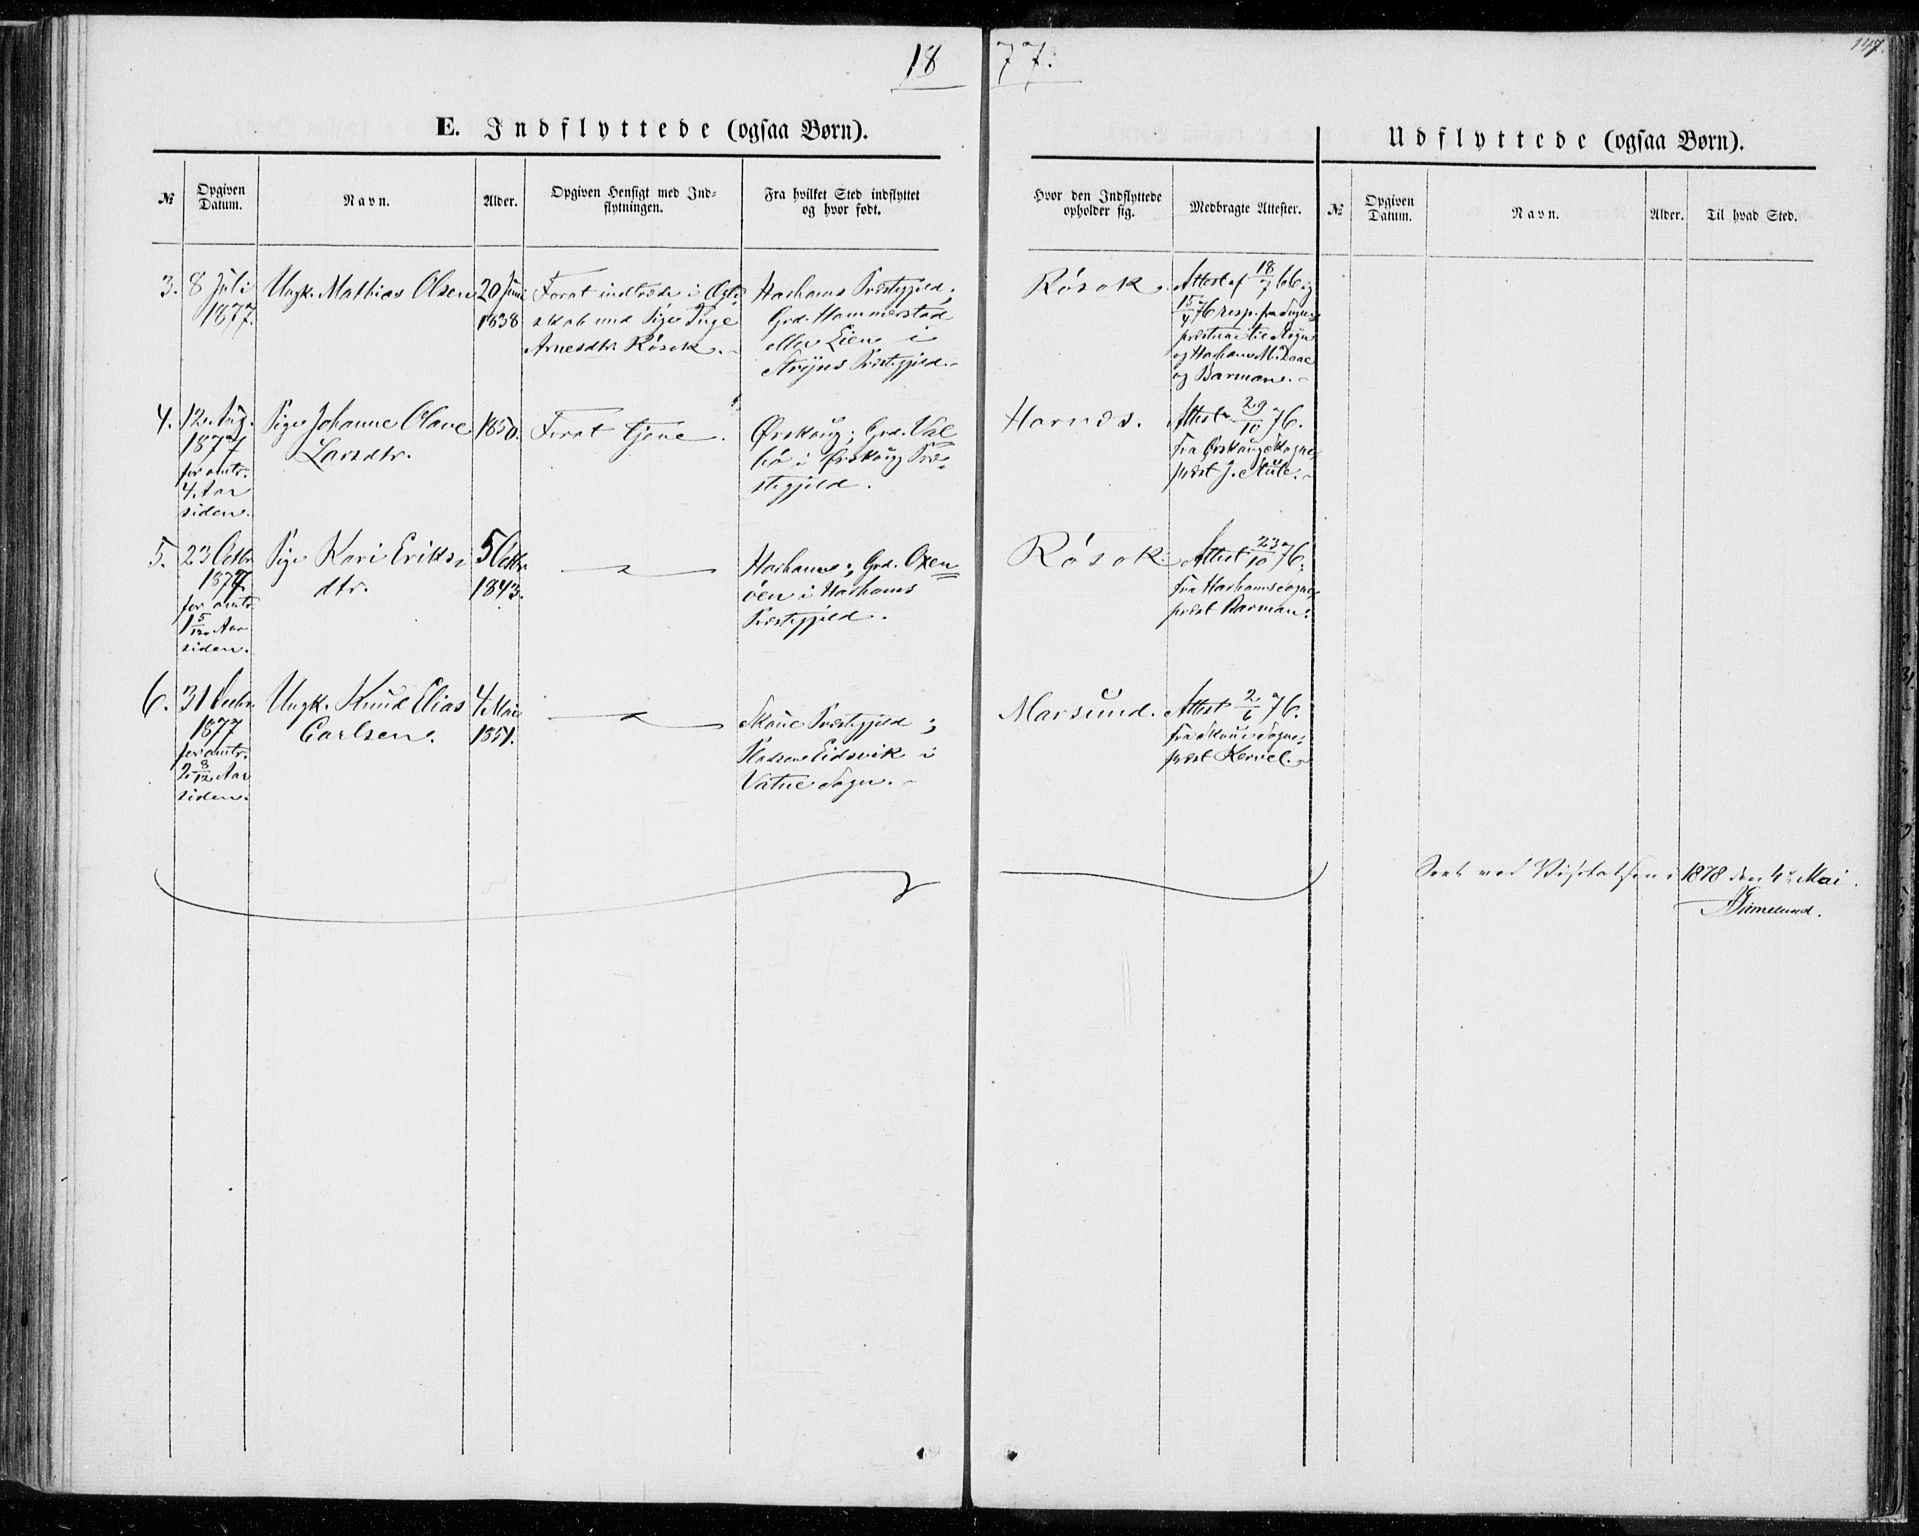 147.
1877.
E. Indflyttede (ogsaa Børn).
Udflyttede (ogsaa Børn).
№
Opgiven Datum.
Navn.
Alder.
Opgiven Hensigt med Indflytningen.
Fra hvilket Sted indflyttet og hvor født.
Hvor den Indflyttede opholder sig.
Medbragte Attester.
№
Opgiven Datum.
Navn.
Alder.
Til hvad Sted.
3.
8 Juli
1877.
Ungk. Mathias Olsen
20 Juni
1838.
Forat indtræde i Ægte-
skab med Pige Inge
Arnesdtr Røsok.
Harhams Præstegjeld;
Grd. Hammerstad
eller Lien i
Stryns Præstegjeld.
Røsok.
Attest af 18/7 66 og
15/4 76 resp. fra Sogne-
præsterne til Stryn
og Harham M. Daae
og Barman.
4.
12. Aug.
1877
for omtr.
4 Aar
siden.
Pige Johanne Olave
Larsdtr.
1850.
Forat tjene.
Ørskoug; Grd. Val-
bø i Ørskoug Præ-
stegjeld.
Harnæs.
Attest 29/10 76.
fra Ørskougs Sogne-
præst J. Aule.
5.
23 Octbr.
1877
for omtr.
1 5/12 Aar
siden.
Pige Kari Eriks-
dtr.
5 Octbr.
1843.
Harhams; Grd. Oxen-
öen i Harhams
Præstegjeld.
Røsok
Attest 23/10 76.
fra Harhams Sogne-
præst Barman.
6.
31 Decbr.
1877
for omtr.
2 8/12 Aar
siden.
Ungk. Knud Elias
Carlsen.
4 Mai
1851.
Skoue Præstegjeld;
Pladsen Eidsvik i
Vatne Sogn.
Marsund.
Attest 2/6 76.
fra Skoue Sogne-
præst
Seet ved Visitatsen i 1878 den 4de Mai.